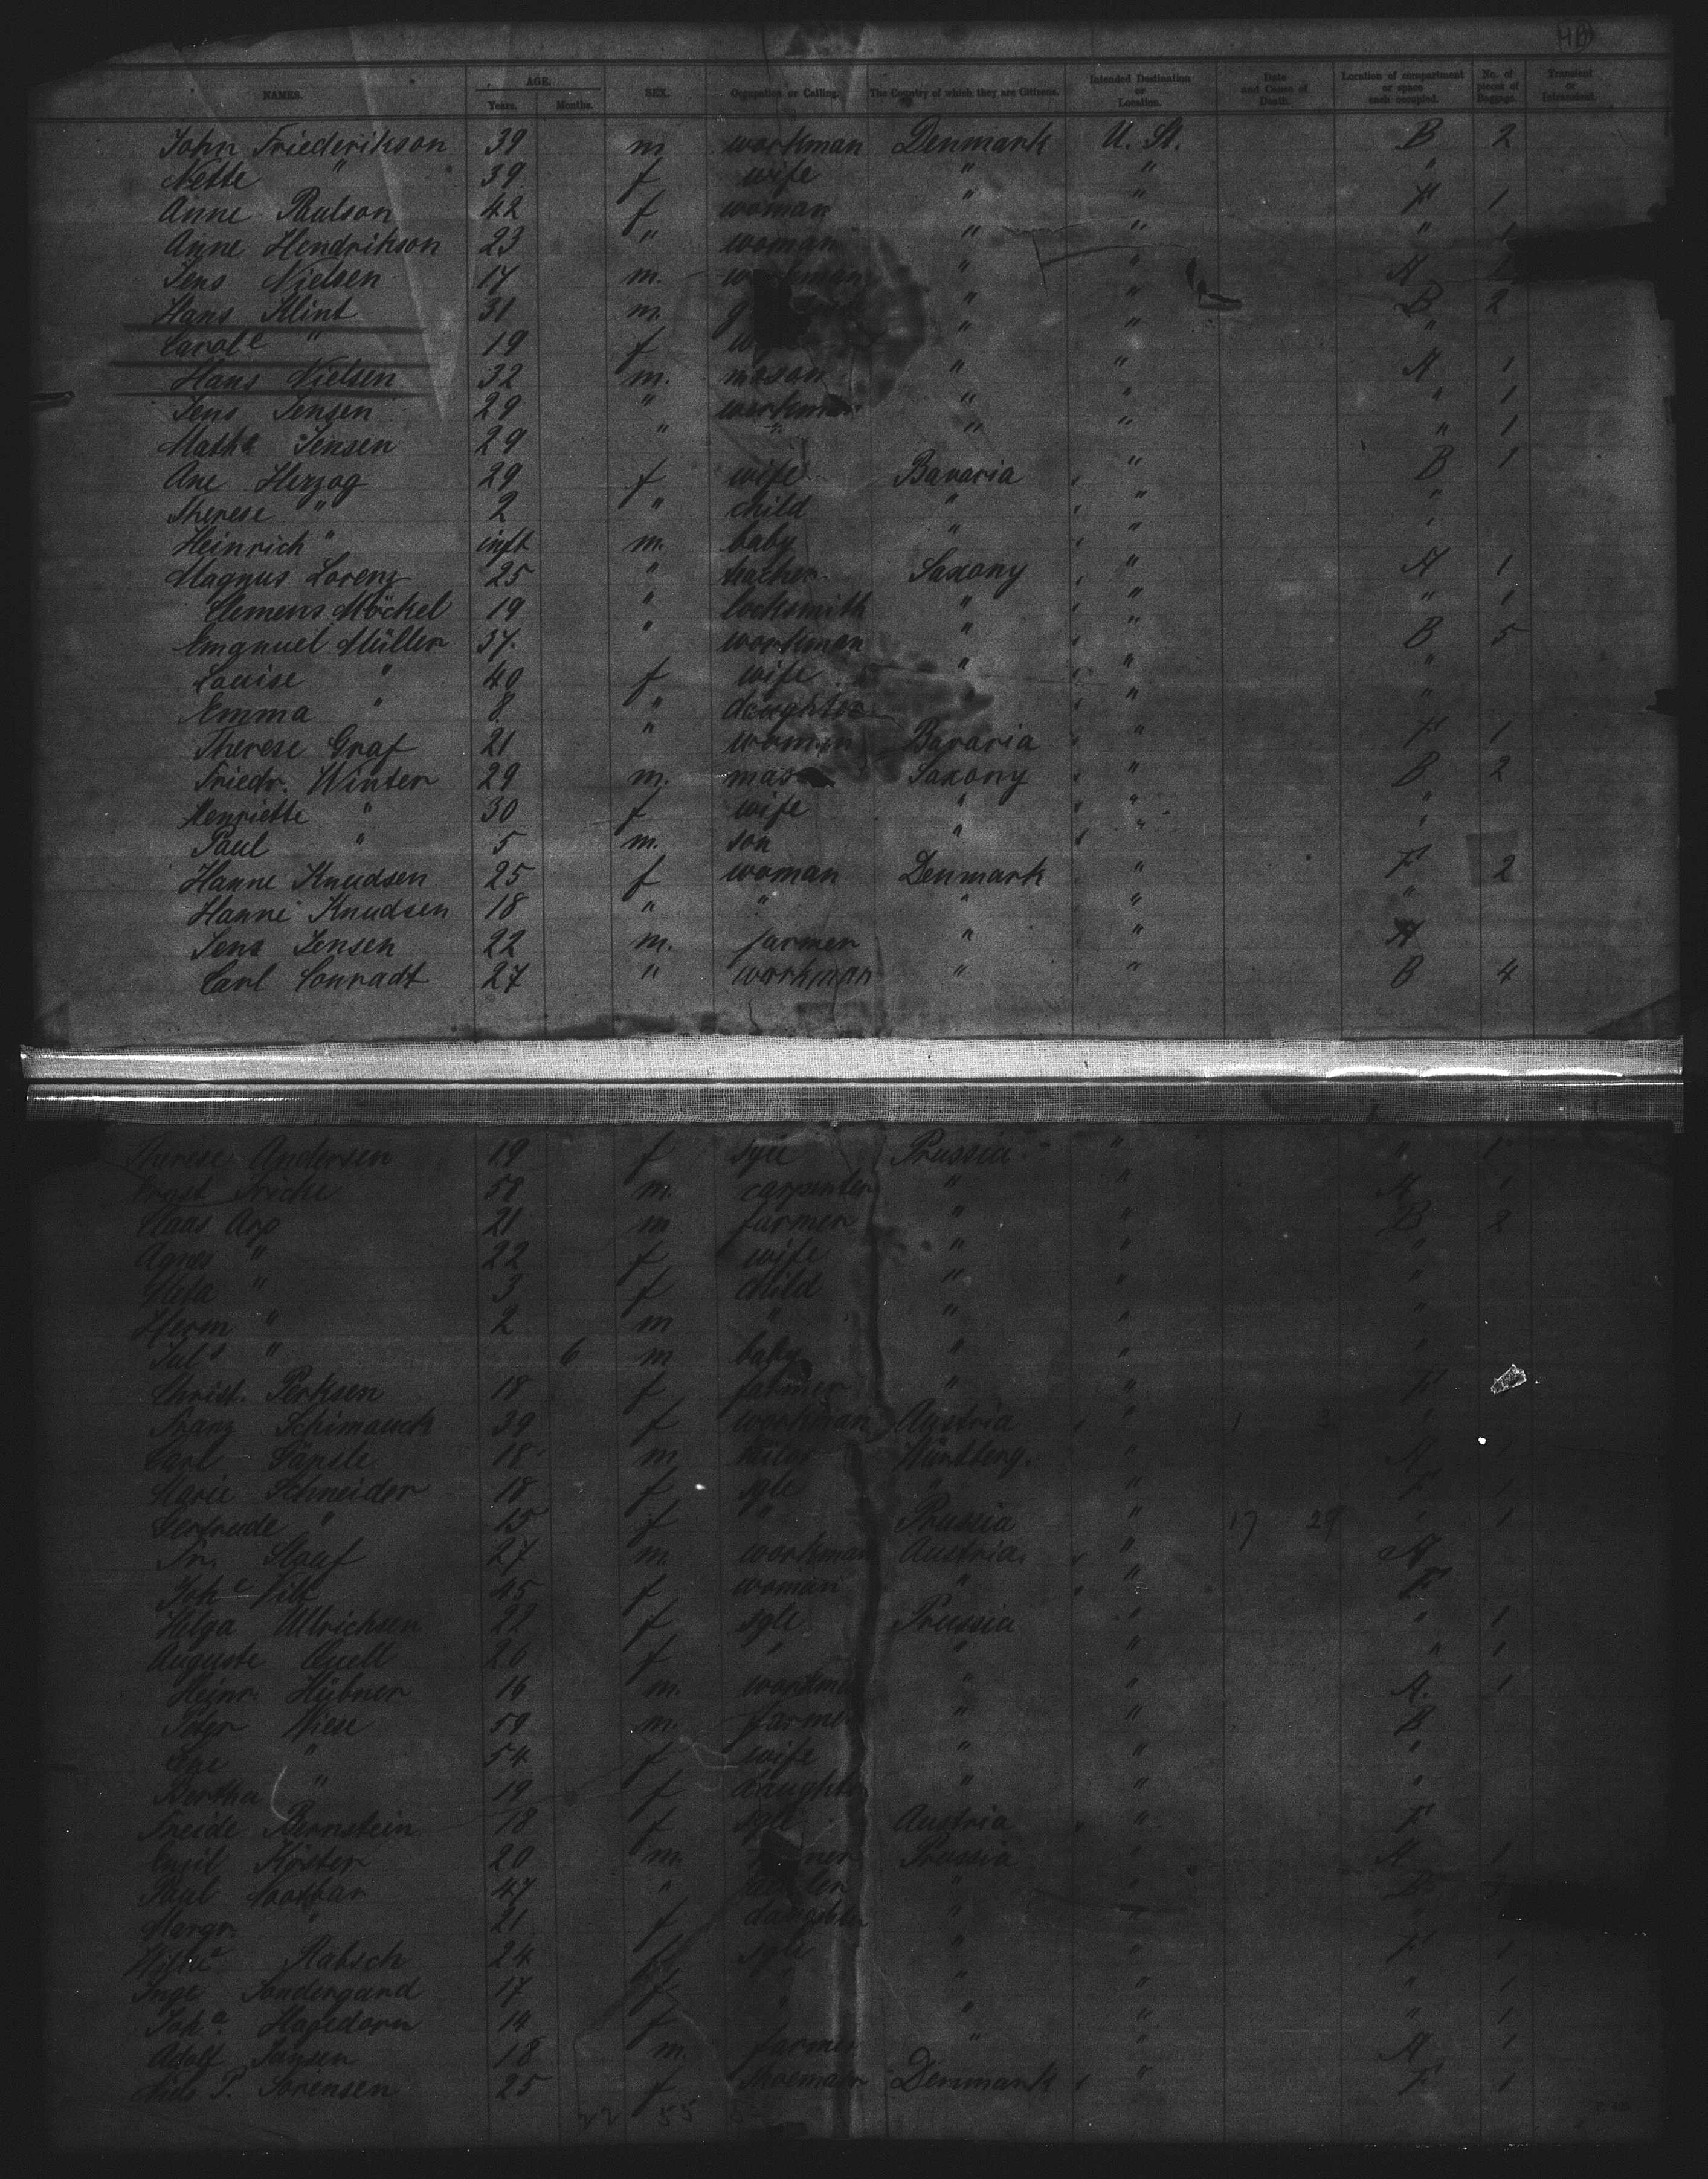 HB
NAMES. AGE. Years. Months. SEX. Occupation or Calling. The Country of which they are Citizens. Intended Destination or Location. Date and Cause of Death. Location of compartment or space each occupied. No. of pieces of Baggage. Transient or Intransient.
John Friederikson 39 m workman Denmark U. St. B 2
Nette " 39 f wife " " "
Anne Paulson 42 f woman " " F 1
Anne Hendrikson 23 " woman " " " 1
Jens Nielsen 17 m. workman " " A
Hans Klint 31 m. " " B 2
Carol e " 19 f " " "
Hans Nielsen 32 m. mason " " A 1
Jens Jensen 29 " workman " " " 1
Jensen 29 " " " " " 1
Ane Herzog 29 f wife Bavaria " B 1
Therese " 2 " child " " "
Heinrich " inft m. baby " " "
Magnus Lorenz 25 " teacher Saxony " A 1
Clemens Möckel 19 " locksmith " " " 1
Emanuel Müller 37. " workman " " B 5
Louise " 40 f wife " " "
Emma " 8 " daughter " "
Therese Graf 21 " woman Bavaria " F 1
Friedr. Winter 29 m. Saxony " B 2
Henriette " 30 f wife " " "
Paul " 5 m. son " "
Hanne Knudsen 25 f woman Denmark " F 2
Hanne Knudsen 18 " " " " "
Jens Jensen 22 m. farmer " " A
Carl Conradt 27 " workman " " B 4
Therese Andersen 19 f Prussia " " 1
Ernst Fricke 58 m. carpenter " " A 1
Claus Arp 21 m farmer " " B 2
Agnes " 22 f wife " " "
" 3 f child " " "
Herm " 2 m " " " "
Jul s " 6 m baby " " "
Christ. Perksen 18 f " " F
Franz Schimauck 39 f workman Austria " 1 3 "
Carl 18 m Würtbeng. " A
Marie Schneider 18 f sgle " " F 1
Gertrude " 15 f " Prussia " 17 29 " 1
Fr. 27 m. workman Austria. " A
Joh e 45 f woman " " F
Helga Ullrichsen 22 f sgle Prussia " " 1
Auguste Quell 26 f " " " " 1
Heinr. Hübner 16 m. " " A. 1
Peter Wiese 59 m. farmer " " B
" 54 f wife " " "
Bertha " 19 f daughter " " "
Freide Bernstein 18 f sgle Austria " F
Emil Köster 20 m. Prussia " A 1
Paul 47 " " "
Margr. " 21 f daughter " "
Rabsch 24 sgle " " F 1
Inge Sondergaard 17 f " " " 1
Joh a. Hagedorn 14 f " " " 1
Adolf Jansen 18 m. farmer " " A 1
Niels P. Sorensen 25 f Denmark " F 1
22 55